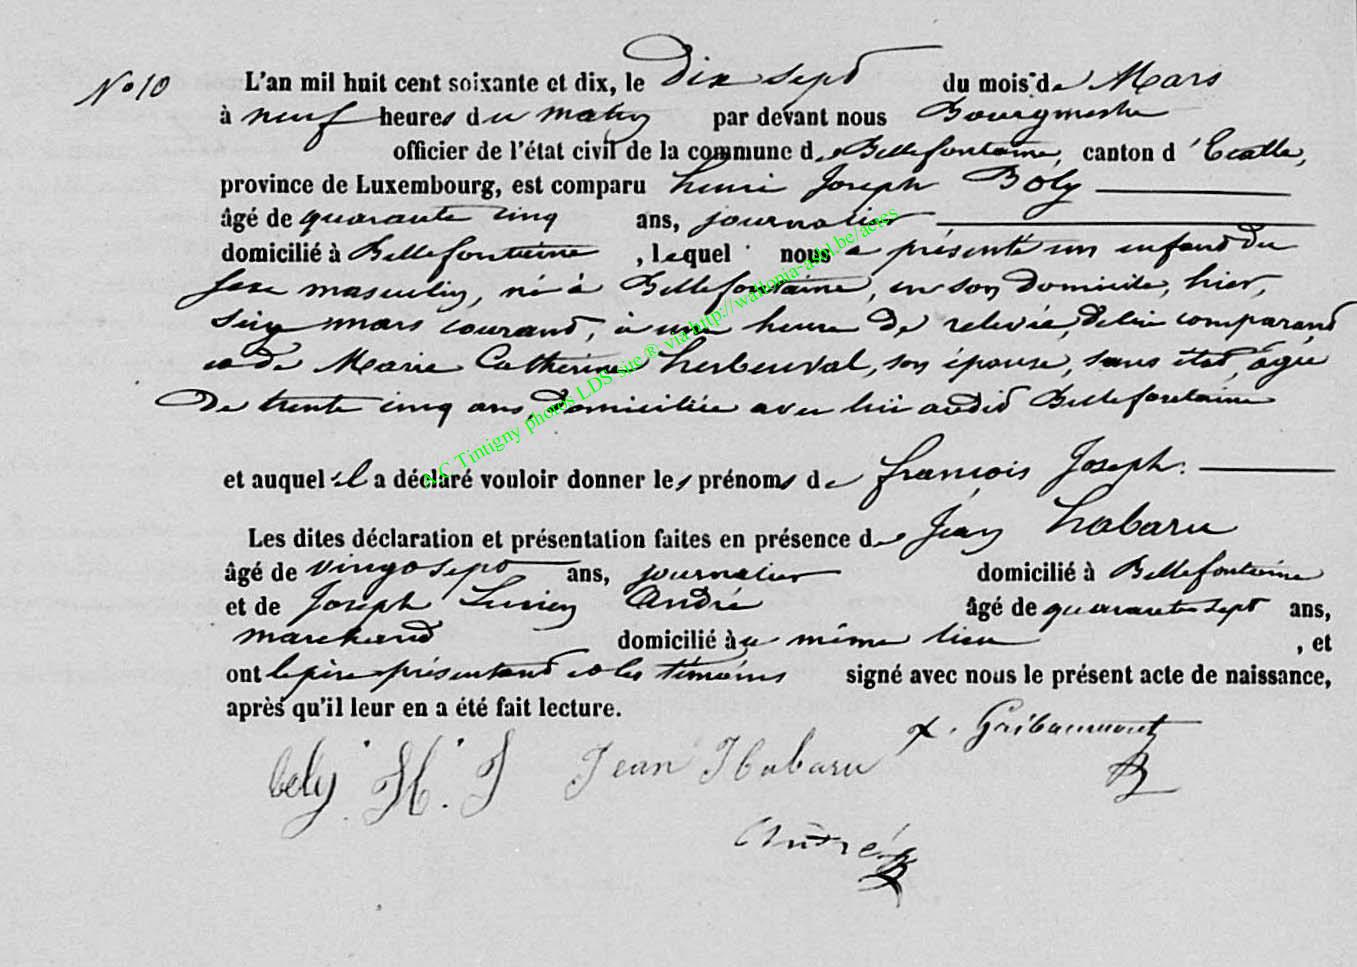 No 10 L'an mil huit cent soixante et dix, le dix sept du mois de Mars
à neuf heures du matin par devant nous Bourgmestre
officier de l'état civil de la commune de Bellefontaine, canton d'Etalle,
province de Luxembourg, est comparu henri Joseph Boly
âgé de quarante cinq ans, journalier
domicilié à Bellefontaine, lequel nous a présenté un enfant du
sexe masculin, né à Bellefontaine, en son domicile, hier,
seize mars courant, à une heure de relevée, de lui comparant
et de Marie Catherine herbeuval, son épouse, sans état, âgée
de trente cinq ans, domiciliée avec lui audit Bellefontaine
et auquel il a déclaré vouloir donner les prénoms de françois Joseph.
Les dites déclaration et présentation faites en présence de Jean habaru
âgé de vingt sept ans, journalier domicilié à Bellefontaine
et de Joseph Lucien André âgé de quarante sept ans,
marchand domicilié au même lieu, et
ont le père présentant et les témoins signé avec nous le présent acte de naissance,
après qu'il leur en a été fait lecture.
x. Gribaumont
boly. H. J Jean Habaru
André
A.C Tintigny photos LDS site ® via http://wallonia-asbl.be/actes